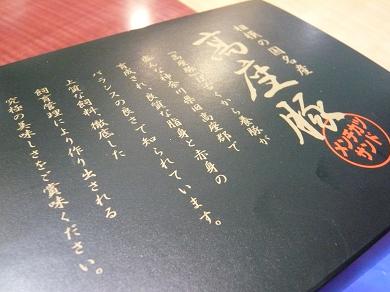 相模の国名産
高座豚
メンチカツ
サンド
「高座豚」は、古くから養豚が
盛んな神奈川県旧高座郡で
育成され、良質な脂身と赤身の
バランスの良さで知られています。
上質な飼料、徹底した
飼育管理により作り出される
究極の美味しさをご賞味ください。